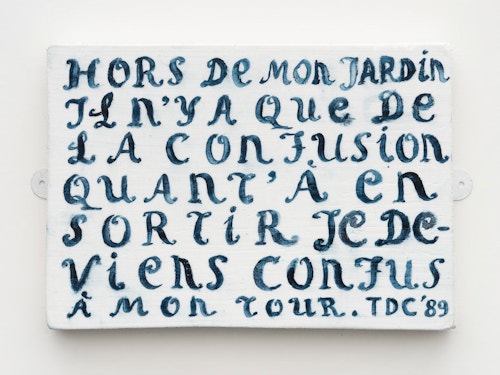 HORS De MON JARDIN
IL N'Y A QUe De
LA CONFUSION
QUANT'À eN
SORTIR JE DE-
VIENS CONFUS
À MON TOUR. TDC'89